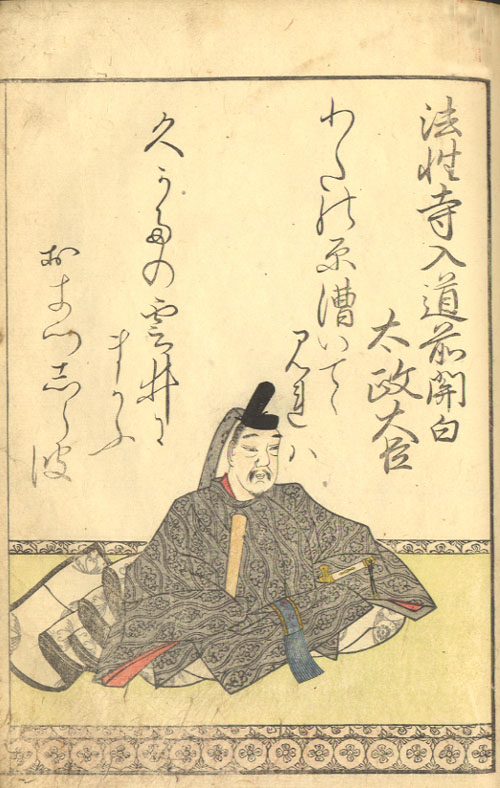 法性寺入道前関白
太政大臣
わたの原漕いてゝ
見れハ
久かたの雲井に
まかふ
おきつしら波